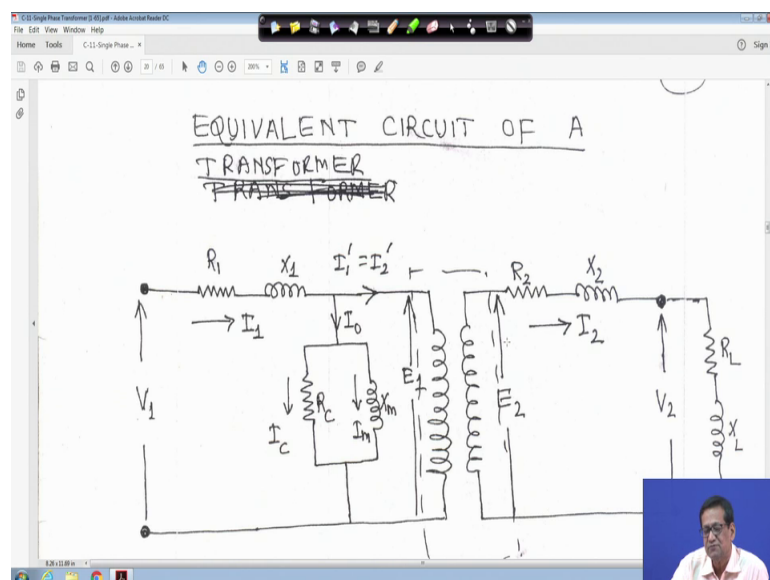 C-11-Single Phase Transformer [1-65].pdf - Adobe Acrobat Reader DC
File Edit View Window Help
Home Tools C-11-Single Phase ... × Sign
20 / 65 200%
EQUIVALENT CIRCUIT OF A
TRANSFORMER
TRANSFORMER
R1 X1 I1' = I2' R2 X2
I1 I0 I2
V1 Rc Xm E1 E2 V2 RL
Ic Im XL
8.26 x 11.69 in